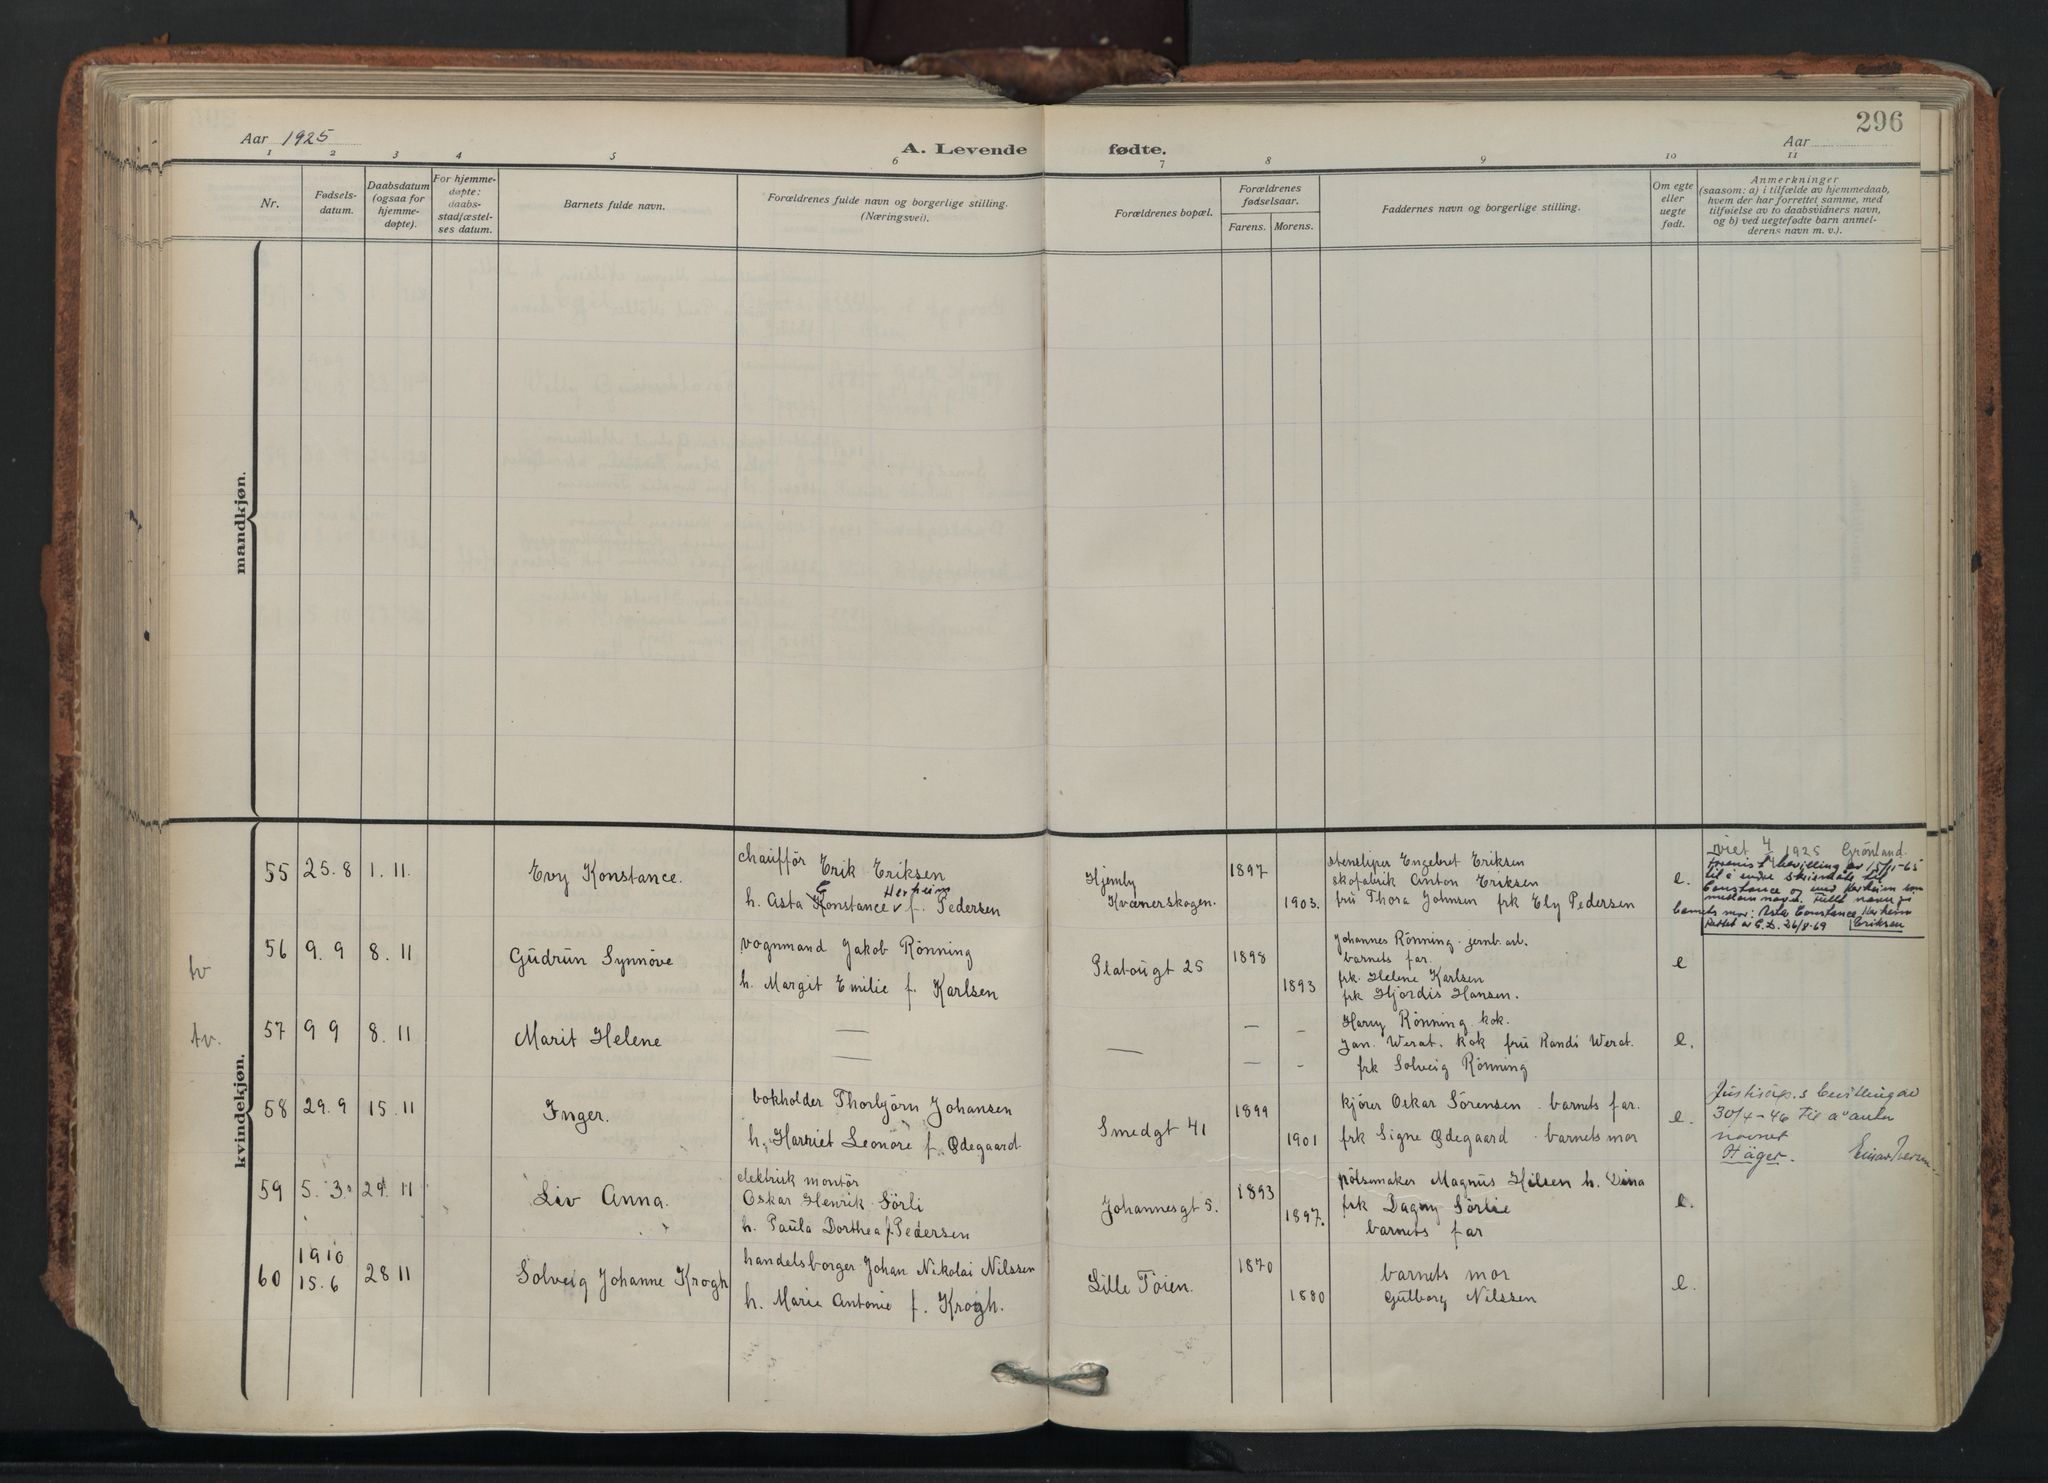 296
Aar 1925
A. Levende fødte.
Aar
1 2 3 4 5 6 7 8 9 10 11
Nr.
Fødsels-
datum.
Daabsdatum
(ogsaa for
hjemme-
døpte).
For hjemme-
døpte:
daabs-
stadfæstel-
ses datum.
Barnets fulde navn.
Forældrenes fulde navn og borgerlige stilling.
(Næringsvei).
Forældrenes bopæl.
Forældrenes
fødselsaar.
Farens. Morens.
Faddernes navn og borgerlige stilling.
Om egte
eller
uegte
født.
Anmerkninger
(saasom: a) i tilfælde av hjemmedaab,
hvem der har forrettet samme, med
tilføielse av to daabsvidners navn,
og b) ved uegtefødte barn anmel-
derens navn m. v.).
mandkjøn.
kvindekjøn.
55 25.8 1.11 Evy Konstance.
chaufför Erik Eriksen
h. Asta Konstance f. Pedersen
C Herheim
Hjemly
Kværnerskogen.
1897
1903.
stensliper Engebret Eriksen
skofabrik Anton Eriksen
fru Thora Johnsen frk Ely Pedersen
e.
viet 4/4 1925 Grönland.
bevilling av 15/1-65
til å endre
Constance og med Herheim som
mellomnavn. Fullt navn på
barnets mor: Asta Constance Herheim
Eriksen
Rettet 26/8-69
tv 56 9.9 8.11 Gudrun Synnöve
vognmand Jakob Rönning
h. Margit Emilie f. Karlsen
Platougt 25
1898
1893
Johannes Rönning jernb. arb.
barnets far.
frk. Helene Karlsen
frk Hjördis Hansen.
e
tv. 57 9 9 8.11 Marit Helene
—
—
—
– –
– –
Harry Rönning kok.
Jan. Werat. kok fru Randi Werat.
frk Solveig Rönning
e.
58 29.9 15.11 Inger.
bokholder Thorbjörn Johansen
h. Harriet Leonöre f. Ødegaard
Smedgt 41
1899
1901
kjörer Oskar Sörensen barnets far.
frk Signe Ødegaard barnets mor
e.
bevilling av
30/4-46 til å anta
navnet
Häger.
59 5.3. 29.11 Liv Anna.
elektrisk montör
Oskar Henrik Sörli
h. Paula Dorthea f. Pedersen
Johannesgt 5.
1893
1897.
pölsemaker Magnus Nilsen h. Dina
frk Dagny Sörlie
barnets far
e.
60 1910
15.6 28 11 Solveig Johanne Krogh
handelsborger Johan Nikolai Nilssen
h. Marie Antonie f. Krogh.
Lille Töien.
1870
1880
barnets mor
Gutborg Nilssen
e.